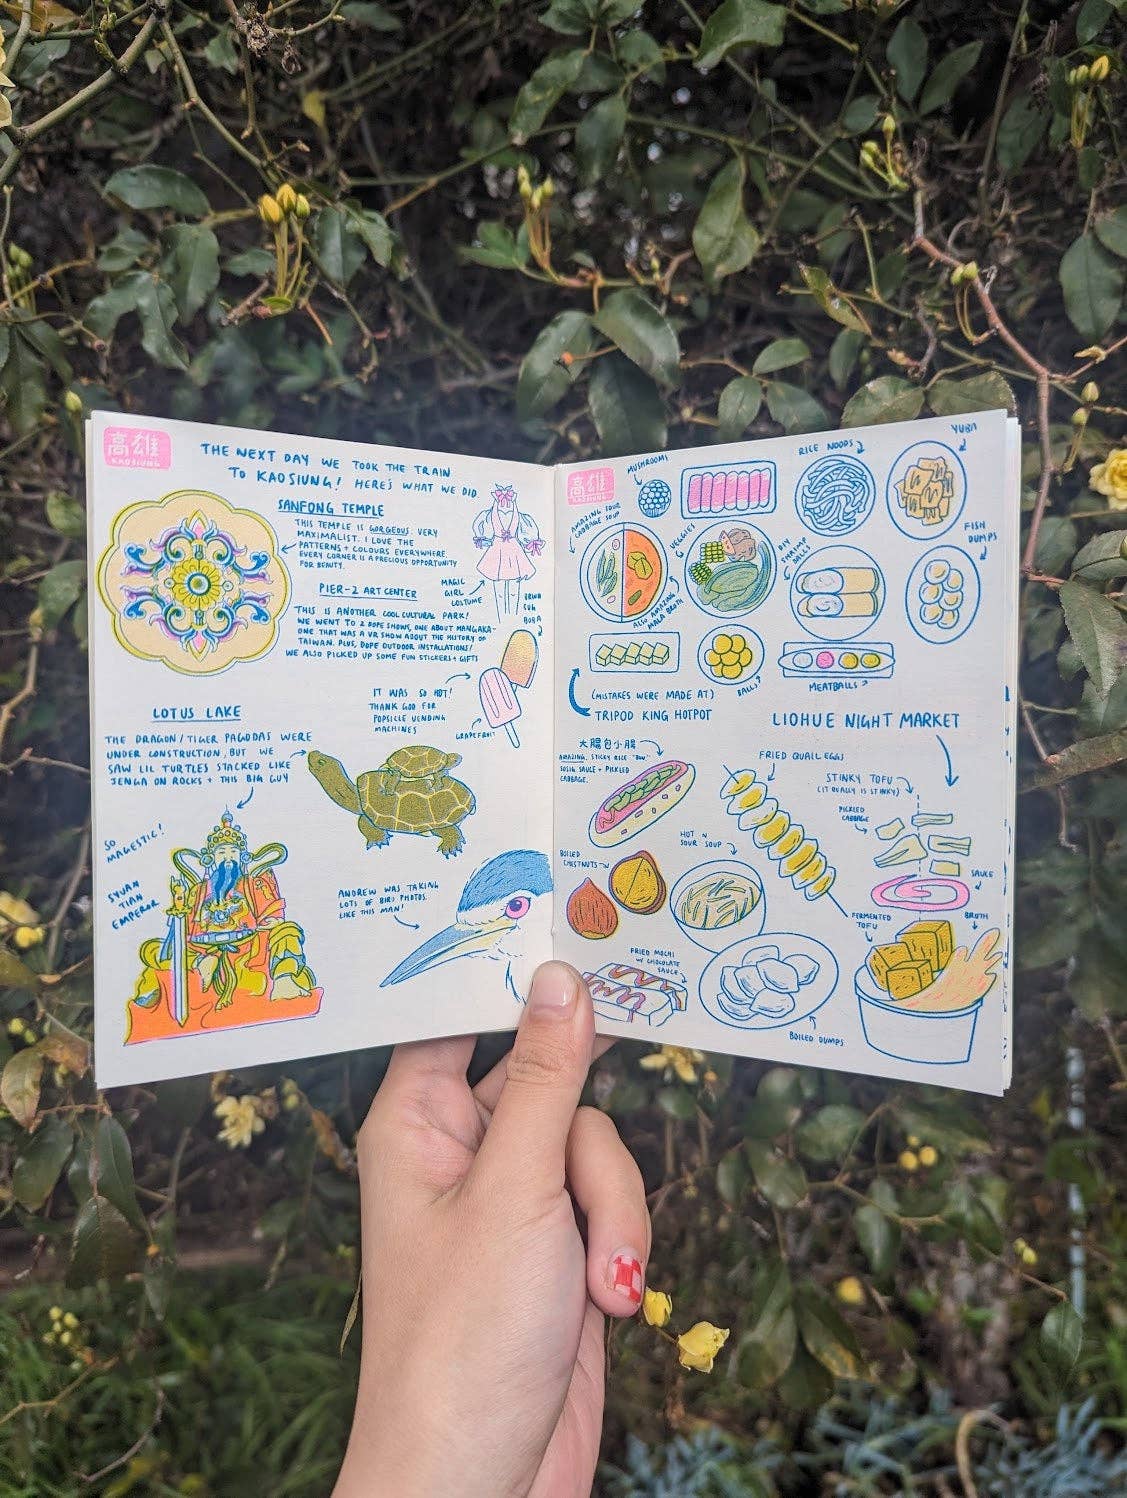 高雄
KAOSIUNG
THE NEXT DAY WE TOOK THE TRAIN
TO KAOSIUNG! HERE'S WHAT WE DID
SANFONG TEMPLE
THIS TEMPLE IS GORGEOUS. VERY
MAXIMALIST. I LOVE THE
PATTERNS + COLOURS EVERYWHERE.
EVERY CORNER IS A PRECIOUS OPPORTUNITY
FOR BEAUTY.
MAGIC
GIRL
COSTUME
PIER-2 ART CENTER
THIS IS ANOTHER COOL CULTURAL PARK!
WE WENT TO 2 DOPE SHOWS, ONE ABOUT MANGAKA-
ONE THAT WAS A VR SHOW ABOUT THE HISTORY OF
TAIWAN. PLUS, DOPE OUTDOOR INSTALLATIONS!
WE ALSO PICKED UP SOME FUN STICKERS + GIFTS
BOBA
IT WAS SO HOT!
THANK GOD FOR
POPSICLE VENDING
MACHINES
GRAPEFRUIT
LOTUS LAKE
THE DRAGON/TIGER PAGODAS WERE
UNDER CONSTRUCTION, BUT WE
SAW LIL TURTLES STACKED LIKE
JENGA ON ROCKS + THIS BIG GUY
SO
MAGESTIC!
SYUAN
TIAN
EMPEROR
ANDREW WAS TAKING
LOTS OF BIRD PHOTOS
LIKE THIS MAN!
高雄
KAOSIUNG
MUSHROOMS
RICE NOODS
YUBA
AMAZING SOUR
CABBAGE SOUP
VEGGIES
DIY
SHRIMP
BALLS
FISH
DUMPS
ALSO AMAZING
MALA BROTH
BALLS
MEATBALLS
(MISTAKES WERE MADE AT)
TRIPOD KING HOTPOT
LIOHUE NIGHT MARKET
大腸包小腸
AMAZING, STICKY RICE "BUN"
SOSIG SAUCE + PICKLED
CABBAGE.
FRIED QUAIL EGGS
STINKY TOFU
(IT REALLY IS STINKY)
PICKLED
CABBAGE
SAUCE
BOILED
CHESTNUTS
HOT N
SOUR SOUP
FERMENTED
TOFU
BROTH
FRIED MOCHI
W/ CHOCOLATE
SAUCE
BOILED DUMPS